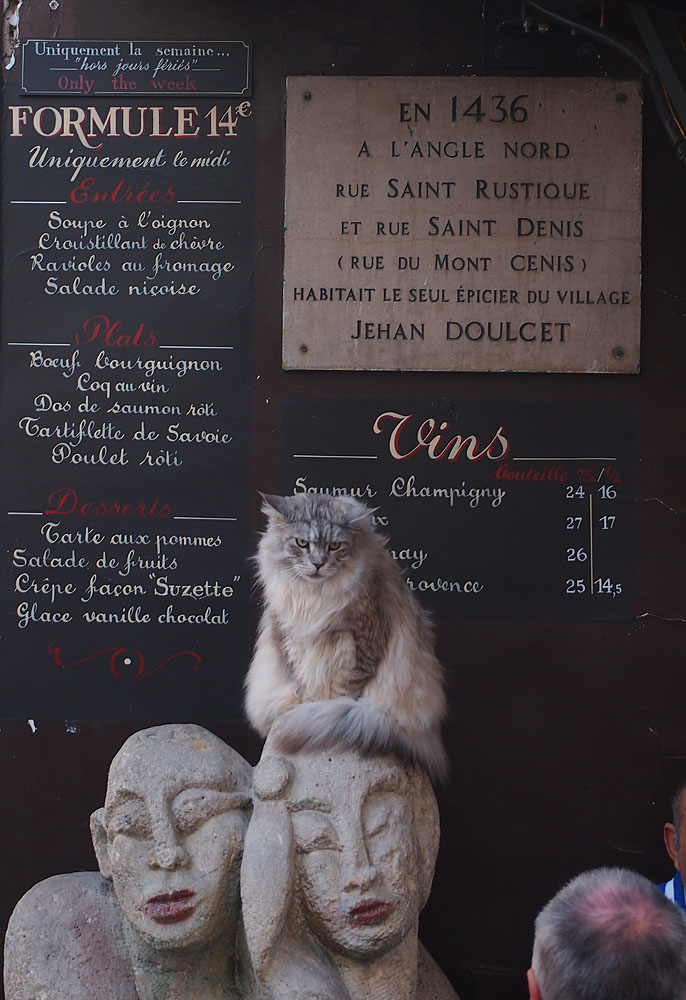 Uniquement la semaine...
"hors jours fériés"
Only the week
FORMULE 14€
Uniquement le midi
Entrées
Soupe à l'oignon
Croustillant de chèvre
Ravioles au fromage
Salade niçoise
Plats
Boeuf bourguignon
Coq au vin
Dos de saumon rôti
Tartiflette de Savoie
Poulet rôti
Desserts
Tarte aux pommes
Salade de fruits
Crêpe façon "Suzette"
Glace vanille chocolat
EN 1436
A L'ANGLE NORD
RUE SAINT RUSTIQUE
ET RUE SAINT DENIS
(RUE DU MONT CENIS)
HABITAIT LE SEUL ÉPICIER DU VILLAGE
JEHAN DOULCET
Vins
bouteille 75cl/½
Saumur Champigny 24 16
27 17
26
25 14,5